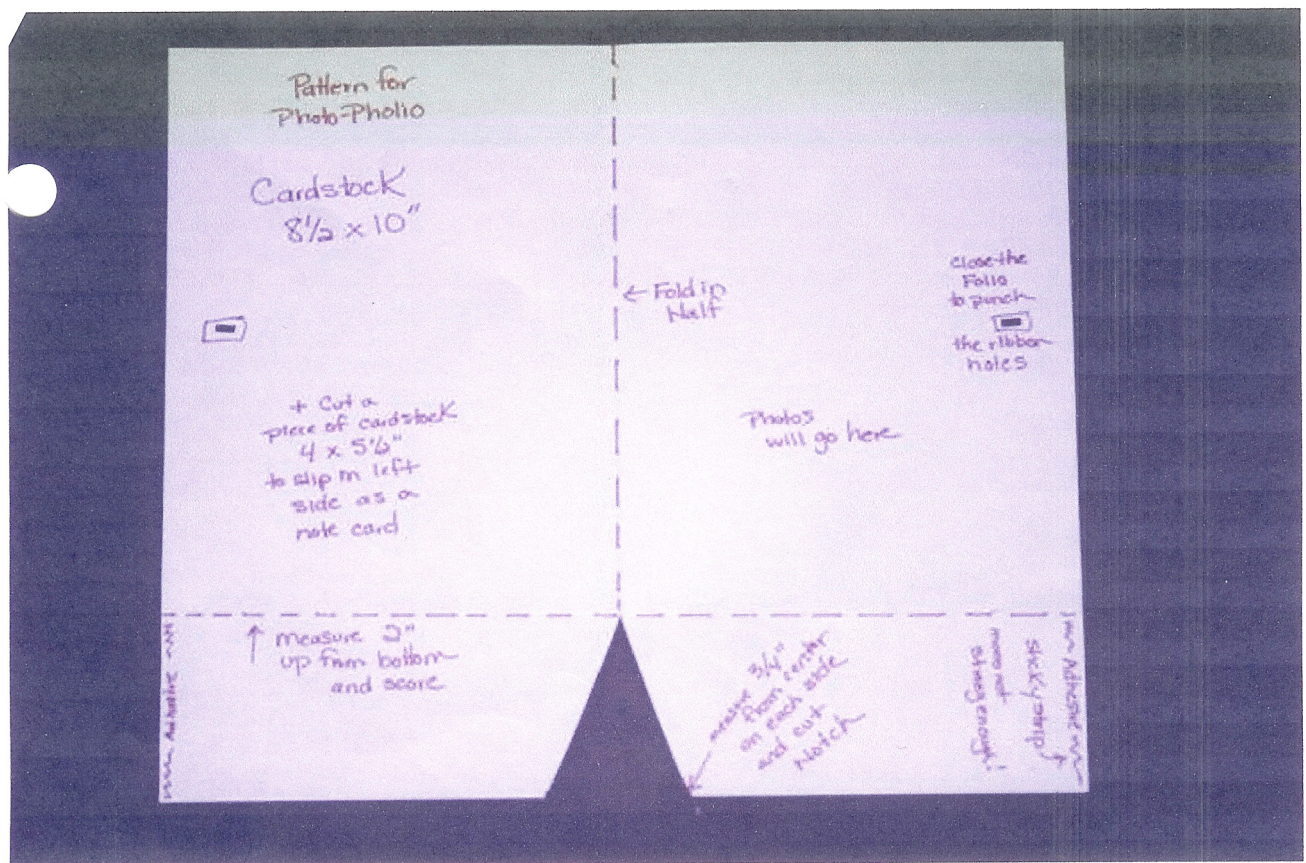 Pattern for
Photo-Pholio
Cardstock
8½ x 10"
← Fold in
Half
close the
Folio
to punch
the ribbon
holes
+ Cut a
piece of cardstock
4 x 5½"
to slip in left
side as a
note card
Photos
will go here
measure 2"
up from bottom
and score
Adhesive
measure 3/4"
from center
on each side
and cut
Notch
Adhesive
sticky strip
mono not
strong enough!